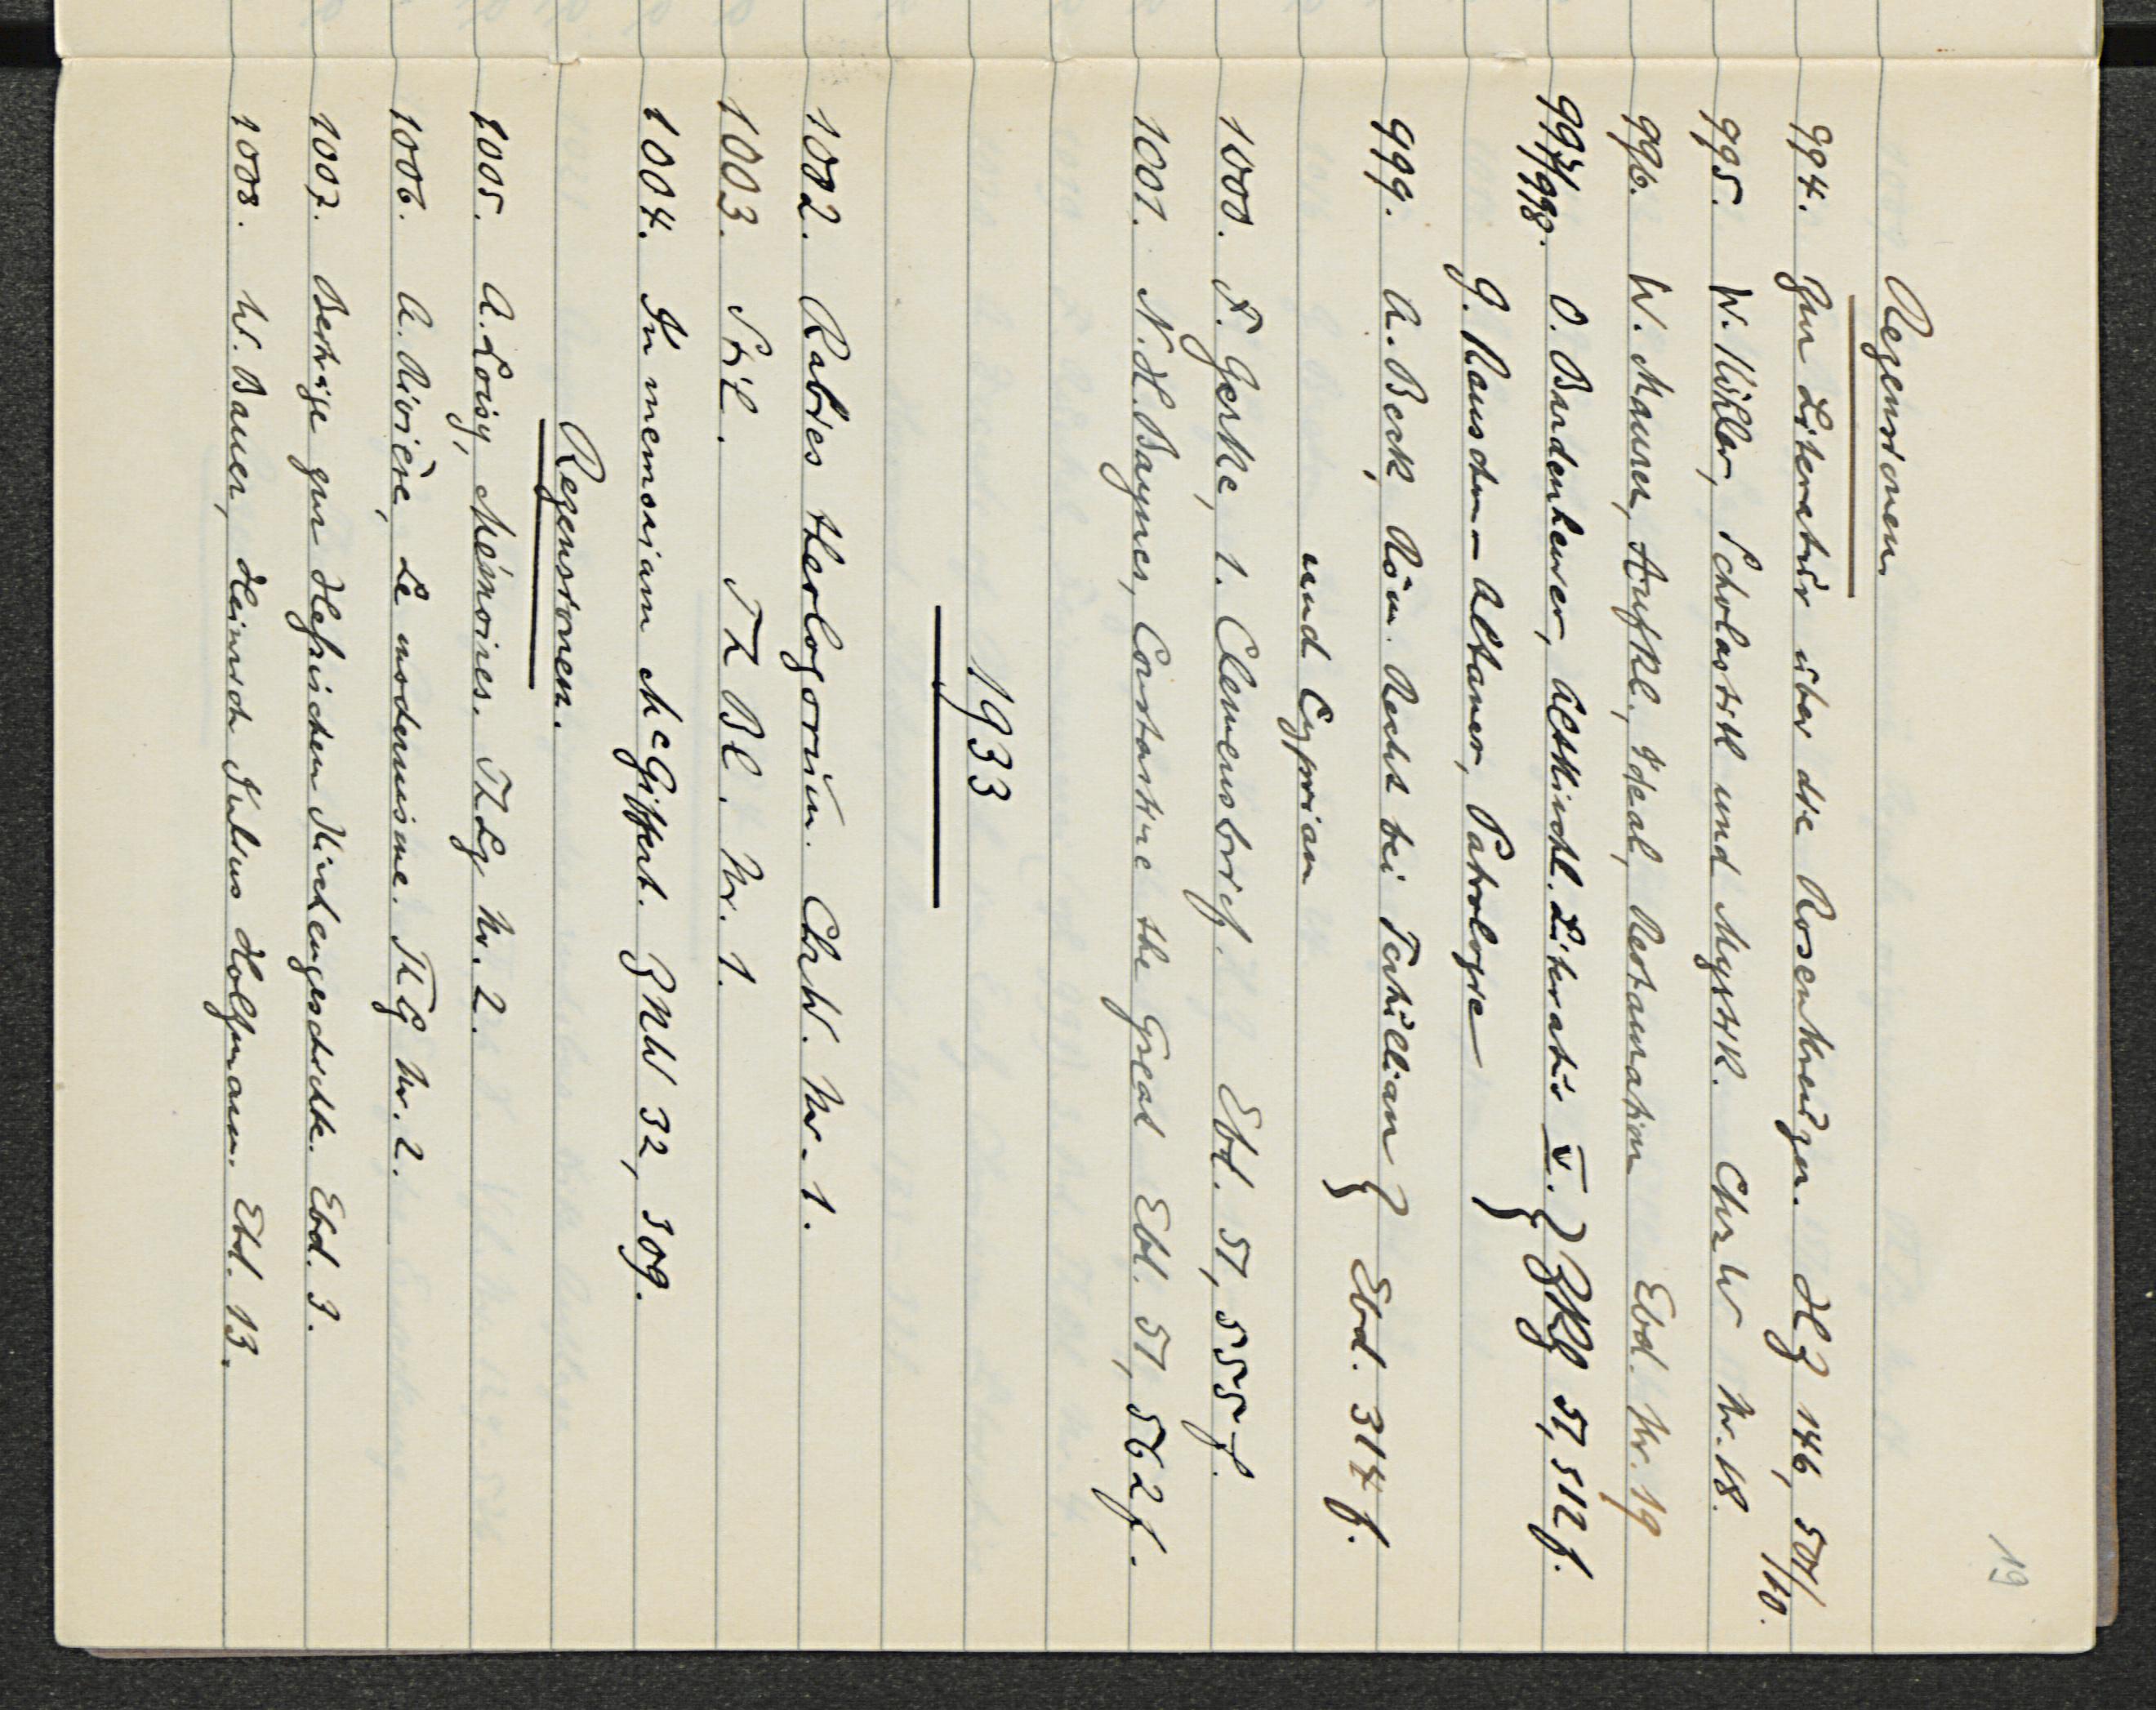 19
Rezensionen
994. Zur Literatur über die Rosenkreuzer. HZ 146, 501/10.
995. W. Köhler, Scholastik und Mystik. ChrW Nr. 18.
996. W. Maurer, Aufkl., Ideal, Restauration Ebd. Nr. 19
997/998. O. Bardenhewer, Altkirchl. Literatur V. } ZKG 51, 312 f.
G. Rauschen–Altaner, Patrologie }
999. A. Beck, Röm. Recht bei Tertullian } Ebd. 314 f.
und Cyprian }
1000. F. Gerke, 1. Clemensbrief. Ebd. 51, 555 f.
1001. N. H. Baynes, Constantine the Great Ebd. 51, 562 f.
1933
1002. Rabies theologorum. ChrW. Nr. 1.
1003. Stil. ThBl. Nr. 1.
1004. In memoriam McGiffert. ZNW 32, 309.
Rezensionen.
1005. A. Loisy, Mémoires. ThLz Nr. 2.
1006. A. Rivière, Le modernisme. ThLz Nr. 2.
1007. Beiträge zur Hessischen Kirchengeschichte. Ebd. 3.
1008. W. Bauer, Heinrich Julius Holtzmann. Ebd. 13.